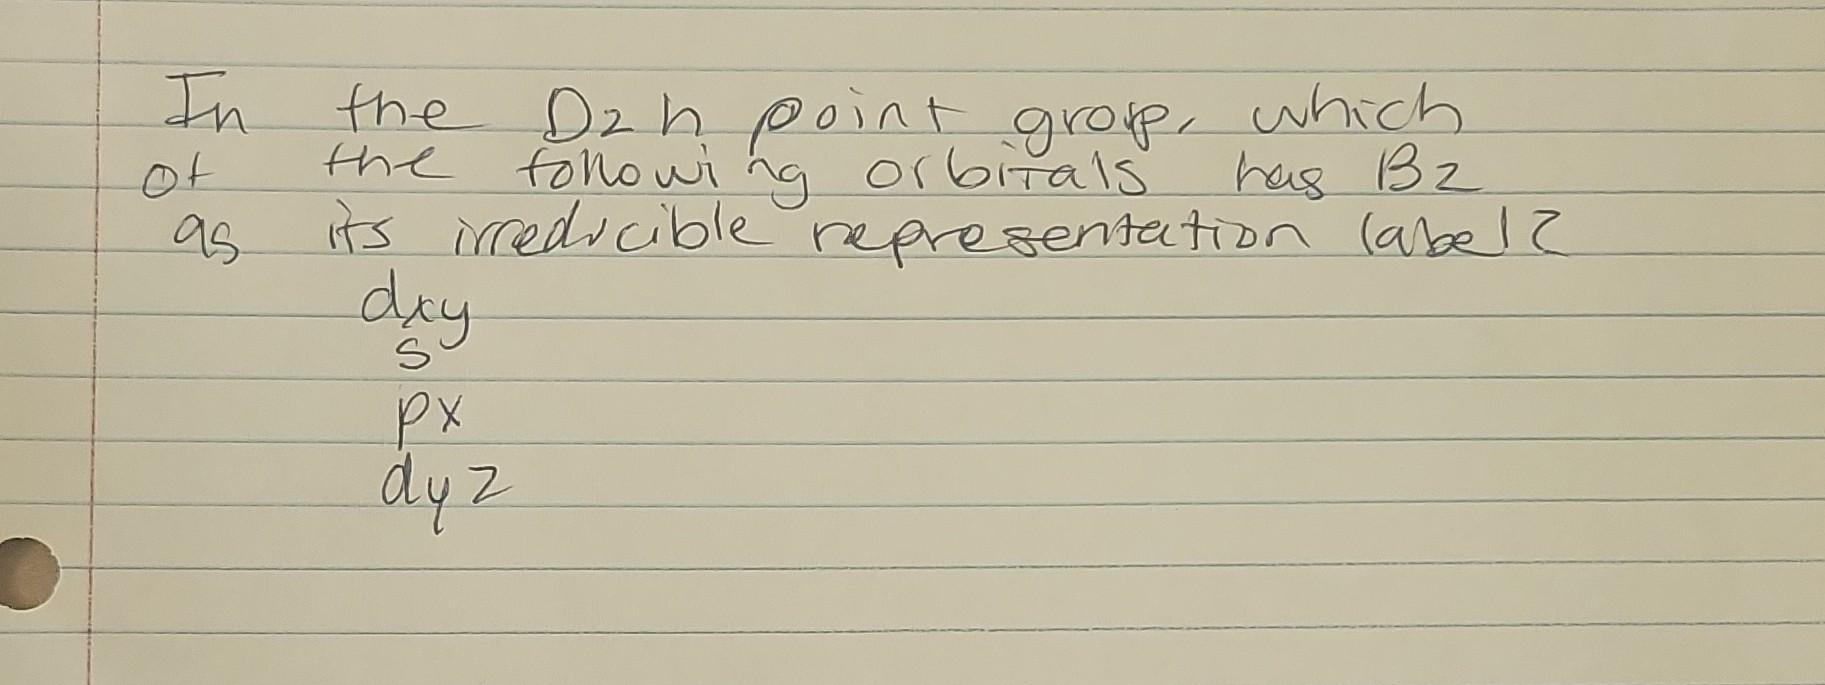 In the D2h point group, which
of the following orbitals has B2
as its irreducible representation label?
dxy
s
px
dyz